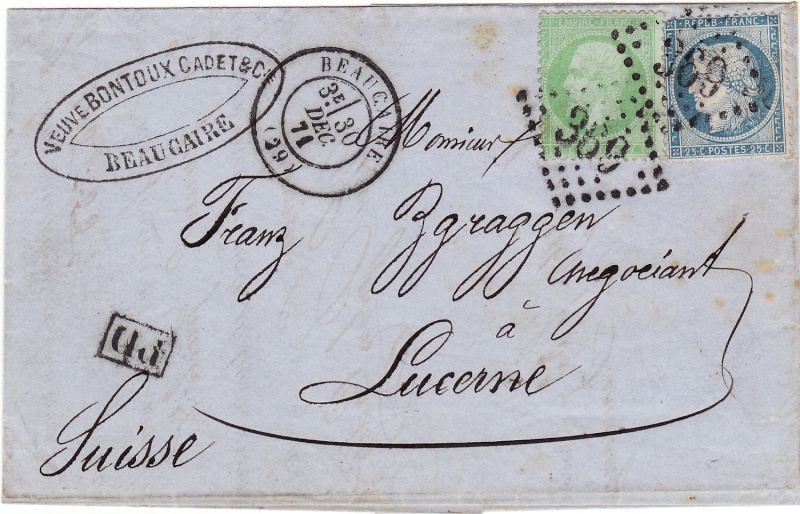 VEUVE BONTOUX CADET & Cie
BEAUCAIRE
BEAUCAIRE
3E 30
DEC
71
(29)
EMPIRE FRANC
REPUB FRANC
25 C POSTES 25 C
369
369
Monsieur
Franz Zgraggen
négociant
à
Lucerne
Suisse
PD